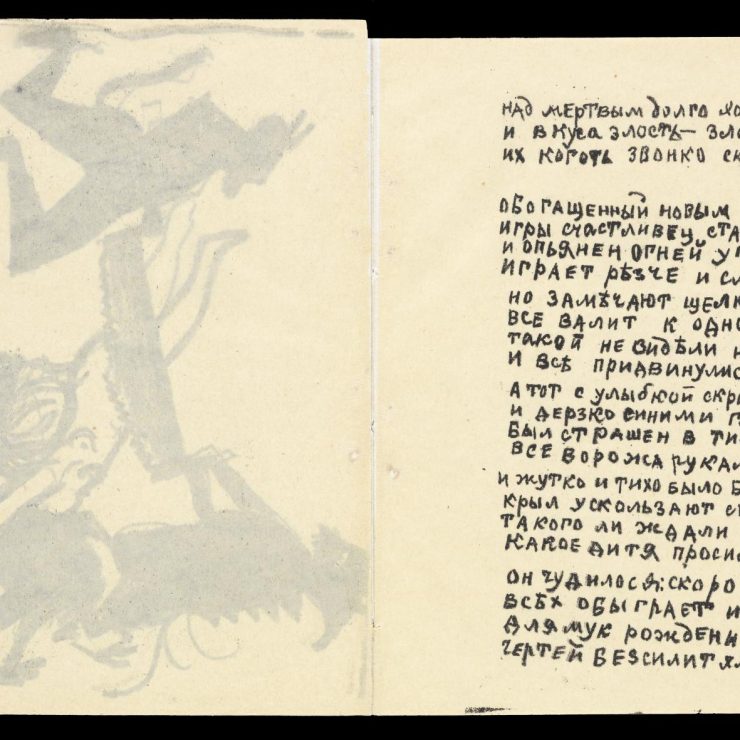 НАД МЕРТВЫМ ДОЛГО ХО
И В КУСА ЗЛОСТЬ— ЗЛО
ИХ КОГОТЬ ЗВОНКО СК
ОБОГАЩЕННЫЙ НОВЫМ
ИГРЫ СЧАСТЛИВЕЦ СТА
И ОПЬЯНЕН ОГНЕЙ У
ИГРАЕТ РѢЗЧЕ И СЛ
НО ЗАМѢЧАЮТ ЩЕЛК
ВСЕ ВАЛИТ К ОДНО
ТАКОЙ НЕ ВИДѢЛИ
И ВСѢ ПРИДВИНУЛИС
А ТОТ С УЛЫБКОЙ СКР
И ДЕРЗКО СИНИМИ Г
БЫЛ СТРАШЕН В ТИ
ВСЕ ВОРОЖА РУКА
И ЖУТКО И ТИХО БЫЛО Б
КРЫЛ УСКОЛЬЗАЮТ С
ТАКОГО ЛИ ЖДАЛИ
КАКОЕ ДИТЯ ПРОСИ
ОН ЧУДИЛОСЯ: СКОРО
ВСѢХ ОБЫГРАЕТ И
ДЛЯ МУК РОЖДЕНИ
ЧЕРТЕЙ БЕЗСИЛИТ